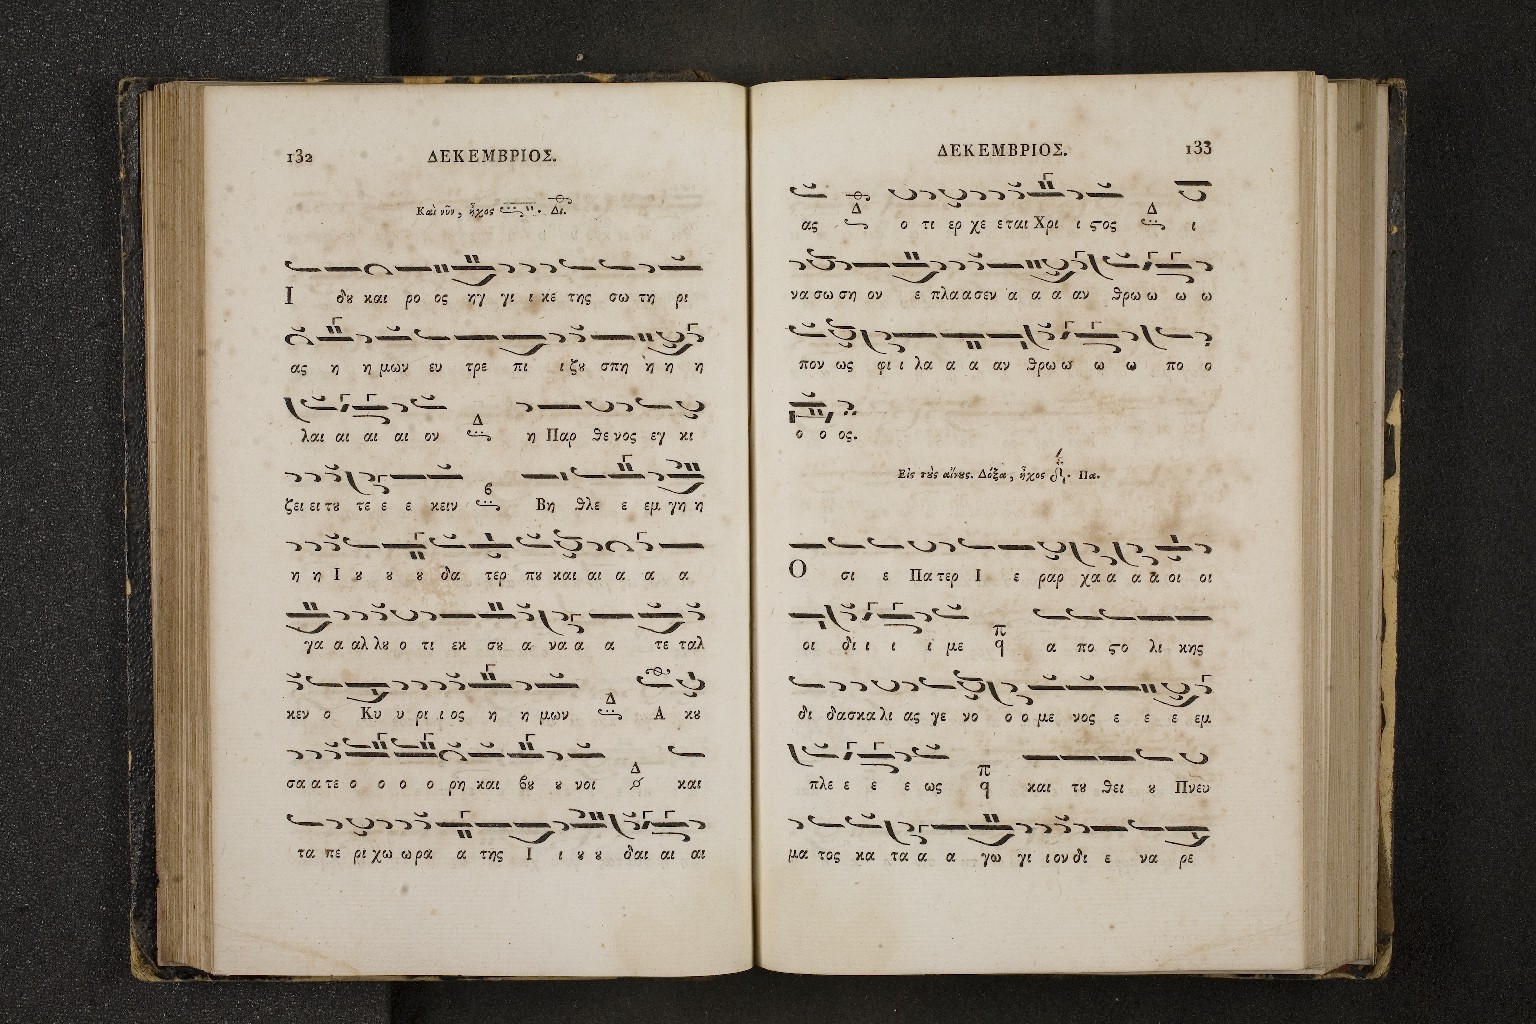 132 ΔΕΚΕΜΒΡΙΟΣ.
Καὶ νῦν, ἦχος Δι.
Ι δȣ και ρο ος ηγ γι ι κε της σω τη ρι
ας η η μων ευ τρε πι ι ζȣ σπη η η η
λαι αι αι αι ον Δ η Παρ θε νος εγ κι
ζει ει τȣ τε ε ε κειν β Βη θλε ε εμ γη η
η η Ι ȣ ȣ ȣ δα τερ πȣ και αι α α α
γα α αλ λȣ ο τι εκ σȣ α να α α τε ταλ
κεν ο Κυ υ ρι ι ος η η μων Δ Α κȣ
σα α τε ο ο ο ο ρη και βȣ ȣ νοι Δ και
τα πε ρι χω ω ρα α της Ι ι ȣ ȣ δαι αι αι
ΔΕΚΕΜΒΡΙΟΣ. 133
ας Δ ο τι ερ χε εται Χρι ι ϛος Δ ι
να σω ση ον ε πλα ασεν α α α αν θρω ω ω ω
πον ως φι ι λα α α αν θρω ω ω ω πο ο
ο ο ος.
Εἰς τȣ̀ς αἴνȣς. Δόξα, ἦχος Πα.
Ο σι ε Πα τερ Ι ε ραρ χα α α α οι οι
οι δι ι ι ι με π q α πο ϛο λι κης
δι δασκα λι ας γε νο ο ο με νος ε ε ε εμ
πλε ε ε ε ως π q και τȣ θει ȣ Πνευ
μα τος κα τα α α γω γι ι ον δι ε να ρε